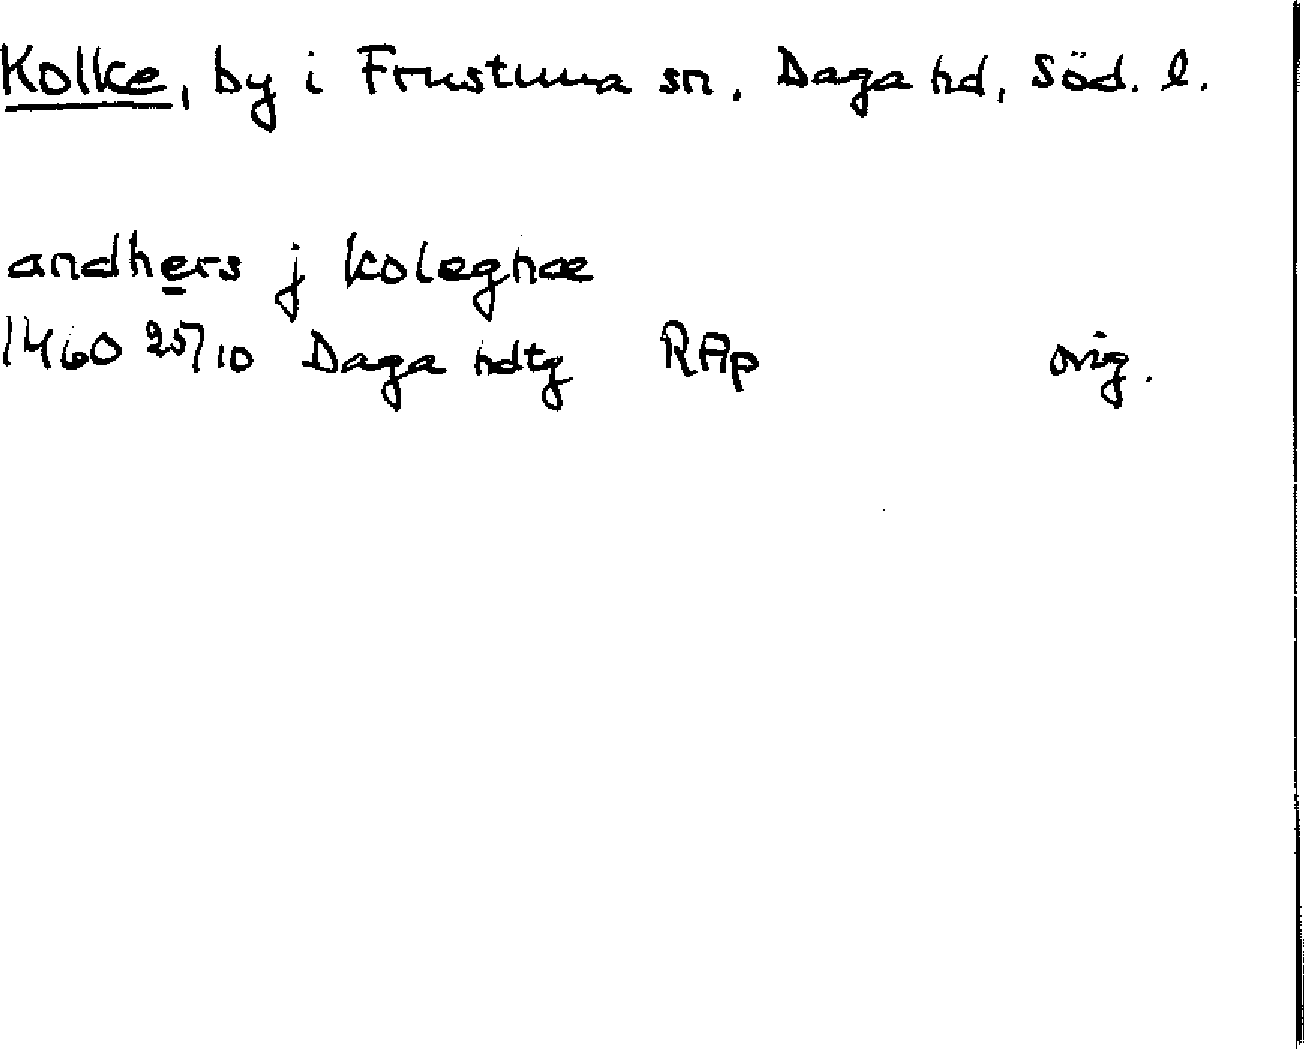 Kolke, by i Frustuna sn. Daga hd, Söd. l.
andhers j koleghæ
1460 25/10 Daga hdtg RAp orig.